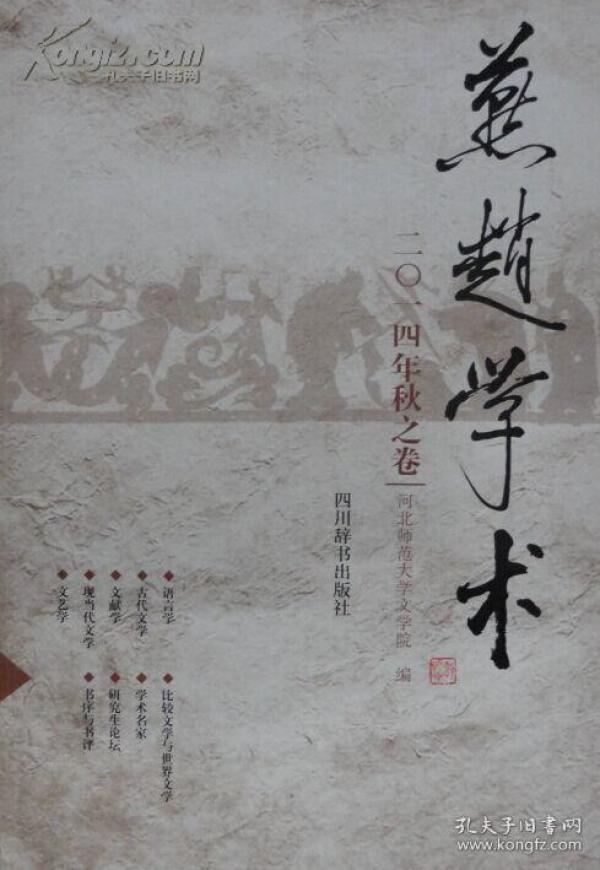 Kongfz.com
孔夫子旧书网
燕趙学术
二〇一四年秋之卷
河北师范大学文学院 编
四川辞书出版社
◆语言学
◆古代文学
◆文献学
◆现当代文学
◆文艺学
◆比较文学与世界文学
◆学术名家
◆研究生论坛
◆书序与书评
孔夫子旧书网
www.kongfz.com